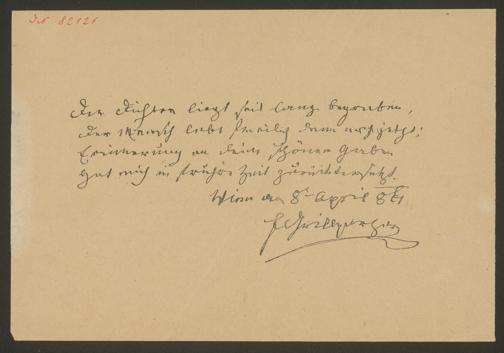 IN 82121
Der Dichter liegt seit lang begraben,
der Mensch lebt freilich denn noch jetzt;
Erinnerung an deine schönen Gaben
Hat mich in frühre Zeit zurückversetzt.
Wien am 8t April 861
FGrillparzer